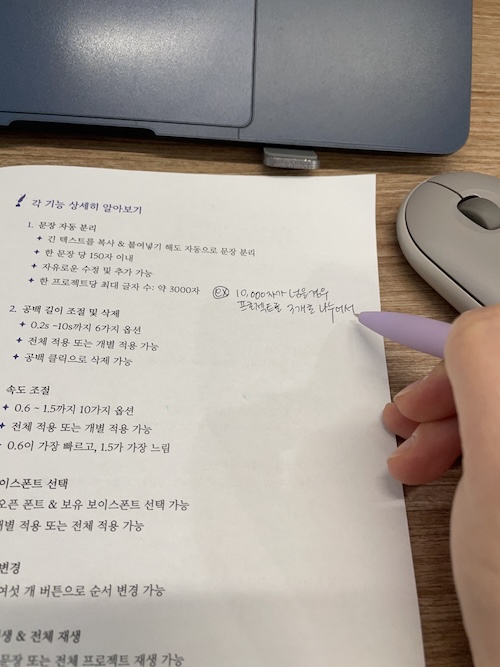 각 기능 상세히 알아보기
1. 문장 자동 분리
✦ 긴 텍스트를 복사 & 붙여넣기 해도 자동으로 문장 분리
✦ 한 문장 당 150자 이내
✦ 자유로운 수정 및 추가 가능
✦ 한 프로젝트당 최대 글자 수: 약 3000자
ex) 10,000자가 넘을 경우
프로젝트를 3개로 나누어서
2. 공백 길이 조절 및 삭제
✦ 0.2s ~10s까지 6가지 옵션
✦ 전체 적용 또는 개별 적용 가능
✦ 공백 클릭으로 삭제 가능
속도 조절
✦ 0.6 ~ 1.5까지 10가지 옵션
✦ 전체 적용 또는 개별 적용 가능
✦ 0.6이 가장 빠르고, 1.5가 가장 느림
이스폰트 선택
오픈 폰트 & 보유 보이스폰트 선택 가능
개별 적용 또는 전체 적용 가능
변경
여섯 개 버튼으로 순서 변경 가능
생 & 전체 재생
문장 또는 전체 프로젝트 재생 가능